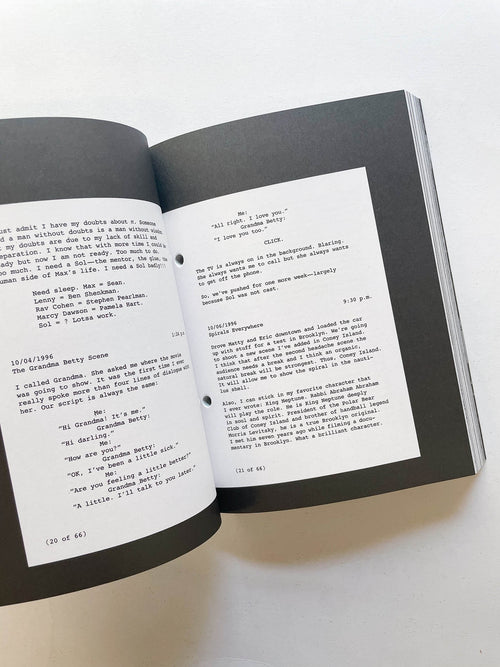 ust admit I have my doubts about π. Someone
d a man without doubts is a man without wisdom
t my doubts are due to my lack of skill and
eparation. I know that with more time I could be
ady but now I am not ready. Too much to do.
oo much. I need a Sol—the mentor, the glue, the
uman side of Max's life. I need a Sol badly!!!
Need sleep. Max = Sean.
Lenny = Ben Shenkman.
Rav Cohen = Stephen Pearlman.
Marcy Dawson = Pamela Hart.
Sol = ? Lotsa work.
1:24 p.m.
10/04/1996
The Grandma Betty Scene
I called Grandma. She asked me where the movie
was going to show. It was the first time I ever
really spoke more than four lines of dialogue with
her. Our script is always the same:
Me:
"Hi Grandma! It's me."
Grandma Betty:
"Hi darling."
Me:
"How are you?"
Grandma Betty:
"OK, I've been a little sick."
Me:
"Are you feeling a little better?"
Grandma Betty:
"A little. I'll talk to you later."
(20 of 66)
Me:
"All right. I love you."
Grandma Betty:
"I love you too."
CLICK.
The TV is always on in the background. Blaring.
She always wants me to call but she always wants
to get off the phone.
So, we've pushed for one more week—largely
because Sol was not cast.
9:30 p.m.
10/06/1996
Spirals Everywhere
Drove Matty and Eric downtown and loaded the car
up with stuff for a test in Brooklyn. We're going
to shoot a new scene I've added in Coney Island.
I think that after the second headache scene the
audience needs a break and I think an organic,
natural break will be strongest. Thus, Coney Island.
It will allow me to show the spiral in the nauti-
lus shell.
Also, I can stick in my favorite character that
I ever wrote: King Neptune. Rabbi Abraham Abraham
will play the role. He is King Neptune deeply
in soul and spirit. President of the Polar Bear
Club of Coney Island and brother of handball legend
Morris Levitsky, he is a true Brooklyn original.
I met him seven years ago while filming a docu-
mentary in Brooklyn. What a brilliant character.
(21 of 66)